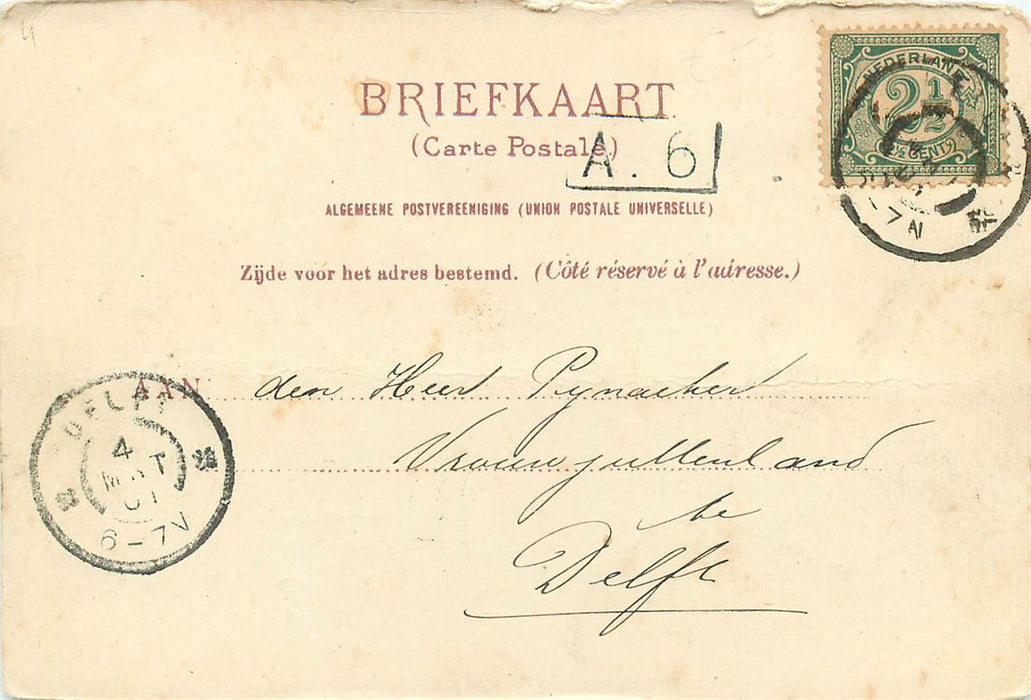 BRIEFKAART
(Carte Postale)
A. 6
ALGEMEENE POSTVEREENIGING (UNION POSTALE UNIVERSELLE)
Zijde voor het adres bestemd. (Côté réservé à l'adresse.)
NEDERLAND
2½
2½ CENT
-7N
AAN den Heer Pynacker
Vrouwjuttenland
te
Delft
DELFT
4
MRT
01
6-7V